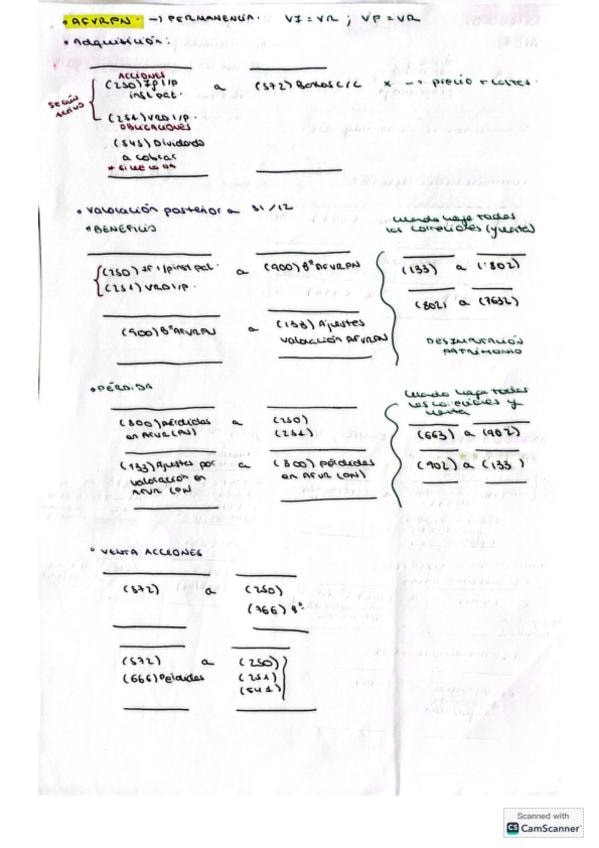 • AFVRPN. → PERMANENCIA. VI = VR ; VP = VR
• Adquisición:
ACCIONES
SEGÚN ACTIVO
(250) If l/p a (572) Bancos c/c x → precio + costes.
inst. pat.
(251) VRD l/p.
OBLIGACIONES
(545) Dividendo
a cobrar
• Valoración posterior a 31/12
• BENEFICIO
Cuando haya todas
las correcciones (y venta)
(250) If l/p inst pat. a (900) Bº AFVRPN
(251) VRD l/p.
(900) Bº AFVRPN a (133) Ajustes
valoración AFVRPN
(133) a (802)
(802) a (7632)
DESIMPUTACIÓN
PATRIMONIO
• PÉRDIDA
Cuando haya todas
las correcciones y
venta
(800) pérdidas a (250)
en AFVR (PN) (251)
(133) Ajustes por a (800) pérdidas
valoración en en AFVR (PN)
AFVR (PN
(663) a (902)
(902) a (133)
• VENTA ACCIONES
(572) a (250)
(766) Bº
(572) a (250)
(666) Pérdidas (251)
(541)
Scanned with
CS CamScanner